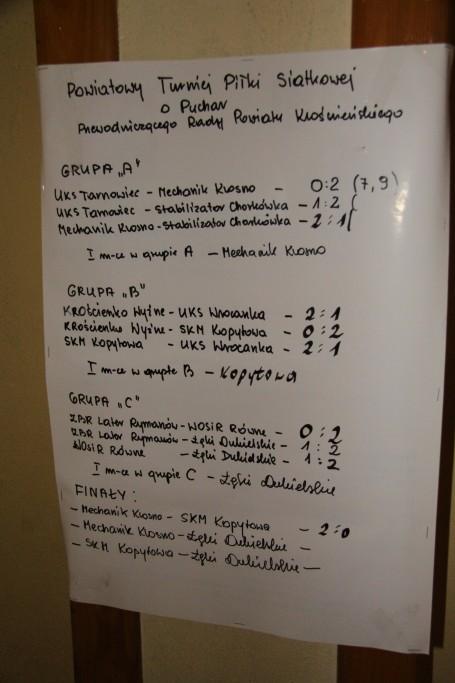 Powiatowy Turniej Piłki Siatkowej
o Puchar
Przewodniczącego Rady Powiatu Krośnieńskiego
GRUPA „A"
UKS Tarnowiec - Mechanik Krosno - 0:2 (7,9)
UKS Tarnowiec - Stabilizator Chorkówka - 1:2
Mechanik Krosno - Stabilizator Chorkówka - 2:1
I m-ce w grupie A - Mechanik Krosno
GRUPA „B"
Krościenko Wyżne - UKS Wrocanka - 2:1
Krościenko Wyżne - SKM Kopytowa - 0:2
SKM Kopytowa - UKS Wrocanka - 2:1
I m-ce w grupie B - Kopytowa
GRUPA „C"
Later Rymanów - WOSiR Równe - 0:2
Later Rymanów - Łęki Dukielskie - 1:2
WOSiR Równe - Łęki Dukielskie - 1:2
I m-ce w grupie C - Łęki Dukielskie
FINAŁY:
- Mechanik Krosno - SKM Kopytowa - 2:0
- Mechanik Krosno - Łęki Dukielskie -
- SKM Kopytowa - Łęki Dukielskie -